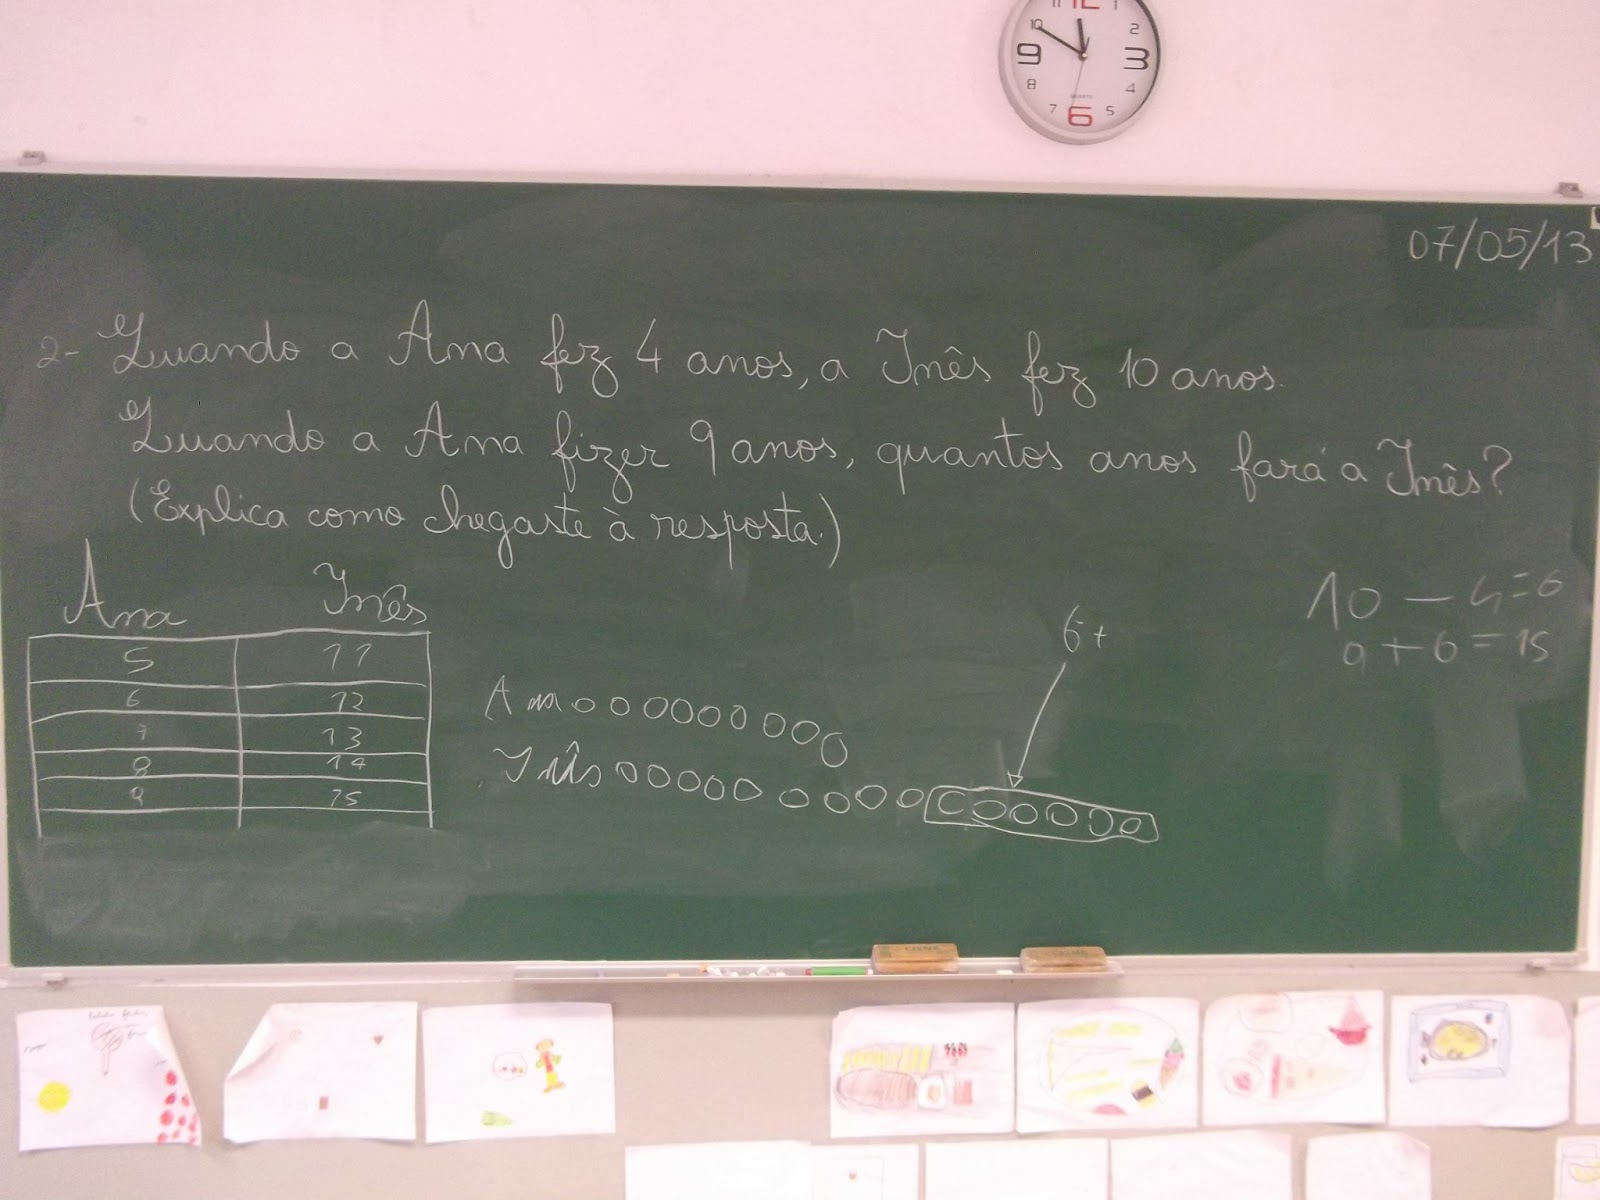 12 1
10 2
9 3
8 4
7 6 5
07/05/13
2- Quando a Ana fez 4 anos, a Inês fez 10 anos.
Quando a Ana fizer 9 anos, quantos anos fará a Inês?
(Explica como chegaste à resposta.)
Ana Inês
5 11
6 12
7 13
8 14
9 15
6+
Ana
Inês
10 - 4=6
9+6=15